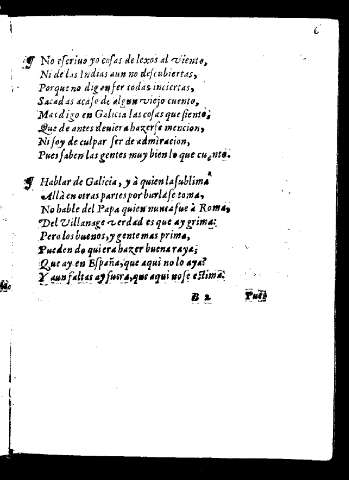 6
¶ No escriuo yo cosas de lexos al viento,
Ni de las Indias aun no descubiertas,
Porque no dig en ser todas inciertas,
Sacadas acaso de algun viejo cuento,
Mas digo en Galicia las cosas que siento,
Que de antes deuiera hazerse mencion,
Ni soy de culpar ser de admiracion,
Pues saben las gentes muy bien lo que cuento.
¶ Hablar de Galicia, y à quien la sublima
Allà en otras partes por burla se toma,
No hable del Papa quien nunca fue à Roma,
Del Villanage verdad es que ay grima:
Pero los buenos, y gente mas prima,
Pueden do quiera hazer buena raya;
Que ay en España, que aqui no lo aya?
Y aun faltas ay fuera, que aqui no se estima.
B 2 Pues